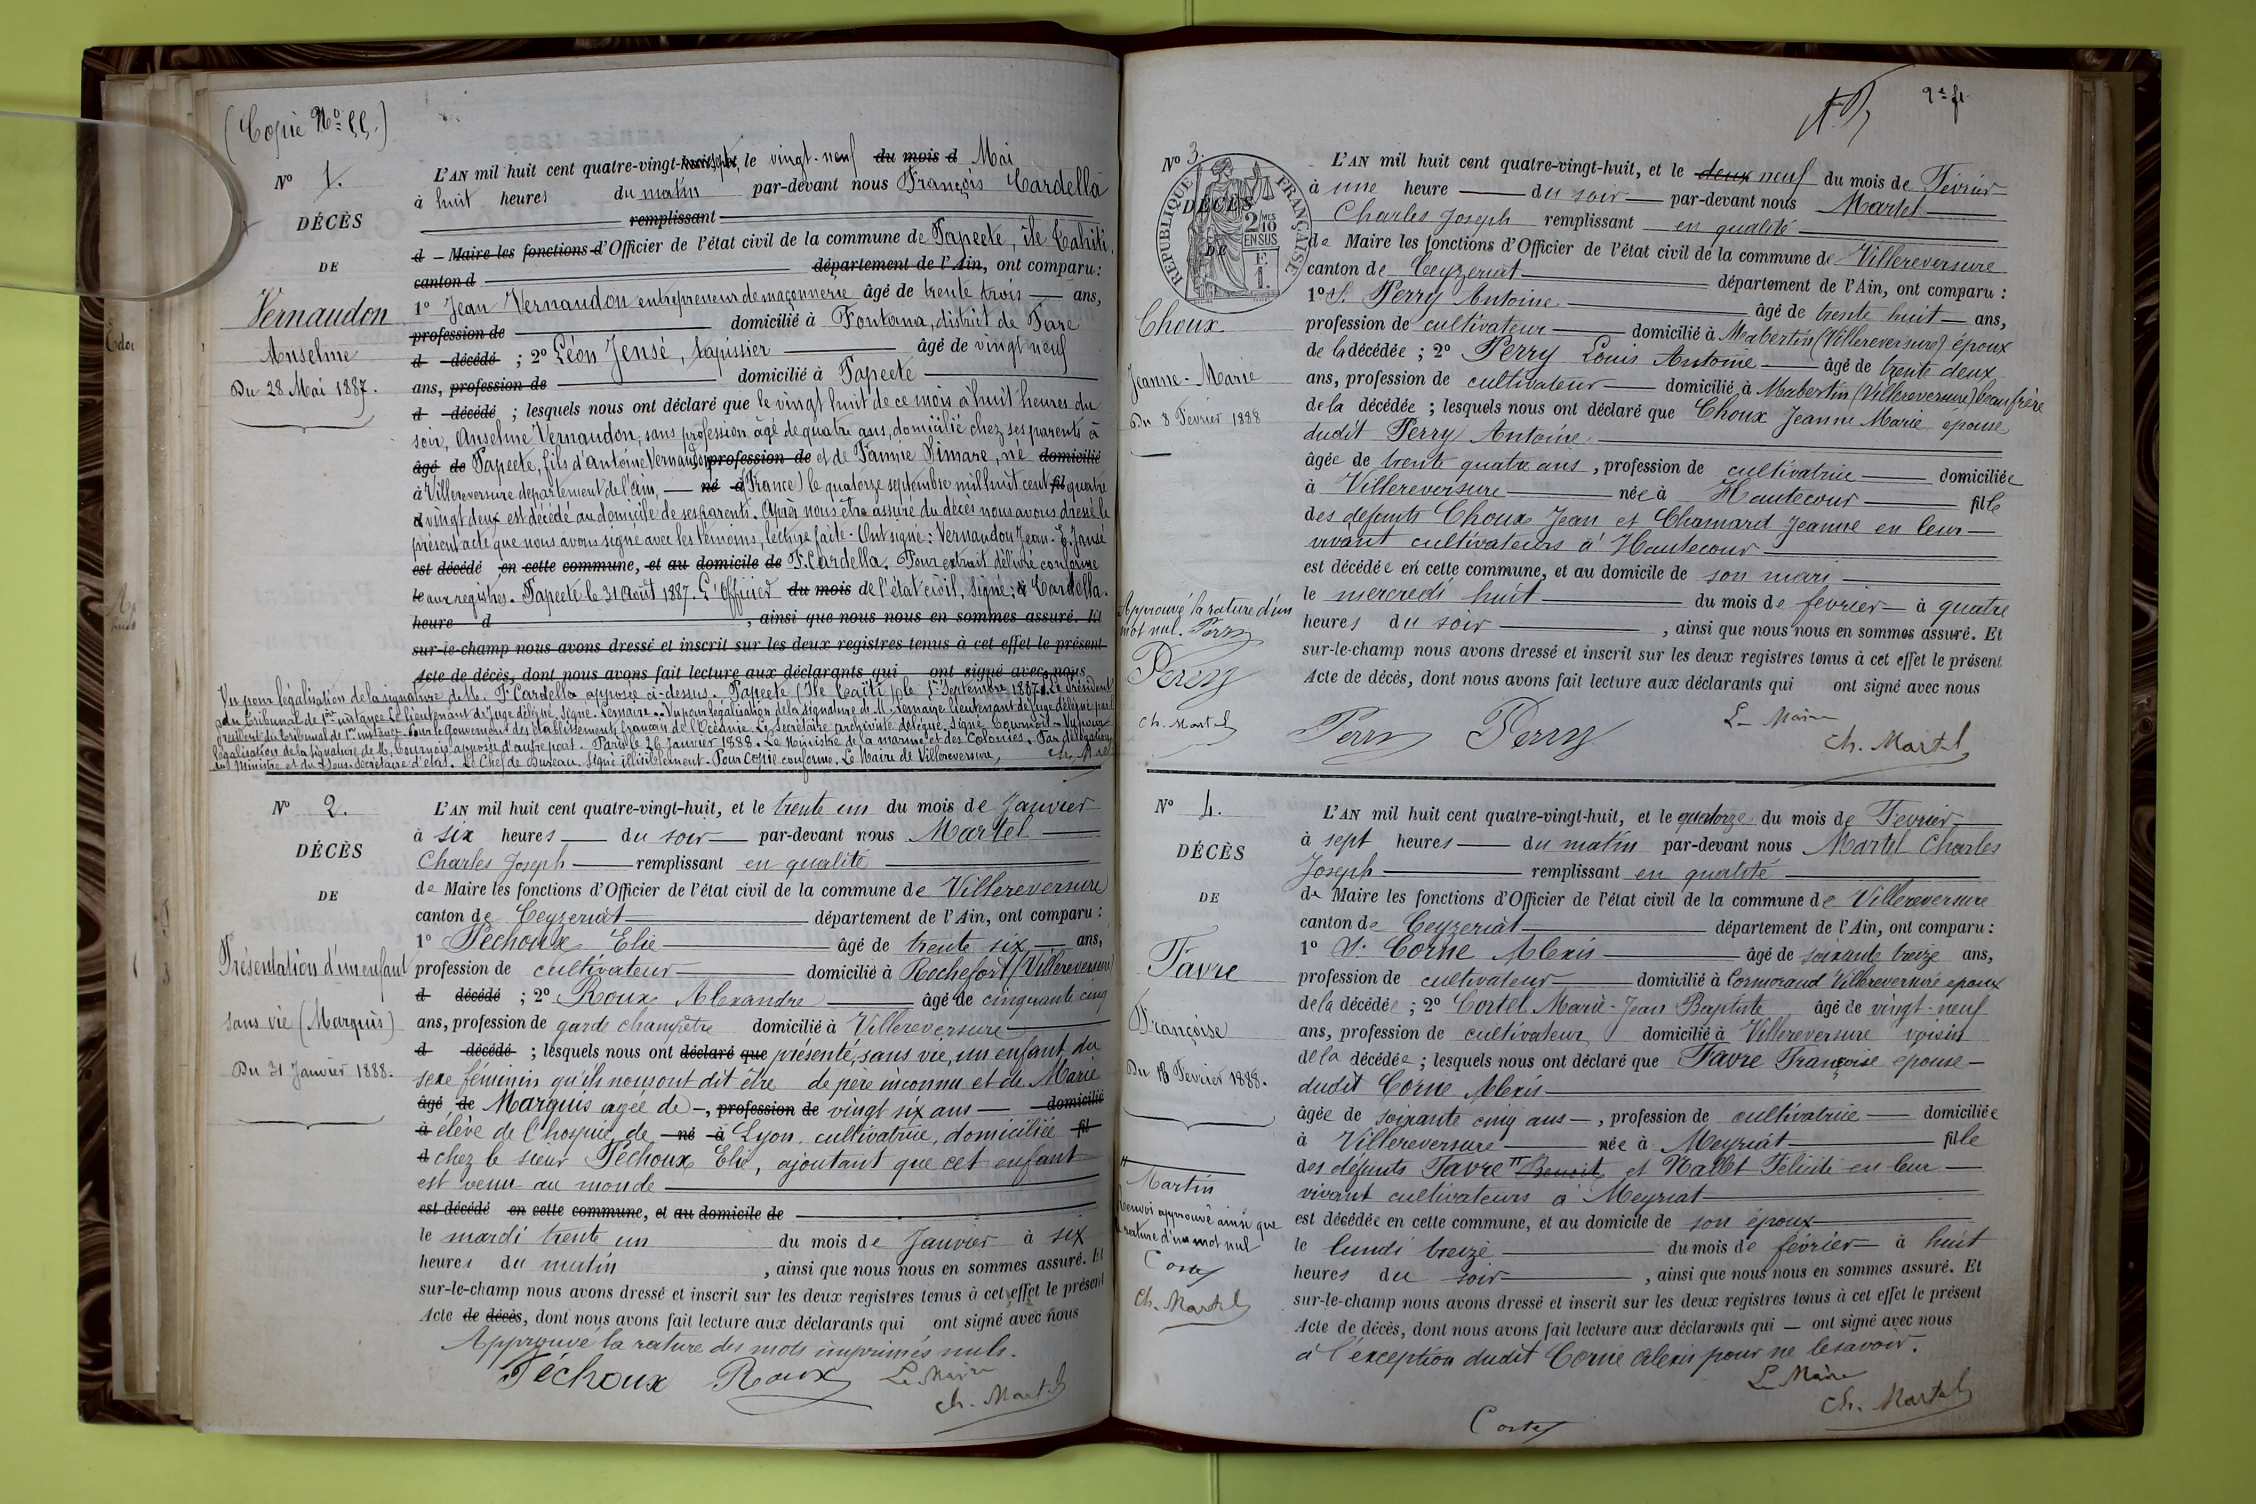 (Copie No 55.)
No 1.
DÉCÈS
DE
Vernaudon
Anselme
Du 28 Mai 1887.
L'AN mil huit cent quatre-vingt-sept, le vingt-neuf du mois d Mai
à huit heures du matin par-devant nous François Cardella
remplissant
d Maire les fonctions d'Officier de l'état civil de la commune de Papeete, île Tahiti.
canton d département de l'Ain, ont comparu :
1o Jean Vernaudon entrepreneur de maçonnerie âgé de trente trois ans,
profession de domicilié à Fontana, district de Pare
d décédé ; 2o Léon Jensé, tapissier âgé de vingt neuf
ans, profession de domicilié à Papeete
d décédé ; lesquels nous ont déclaré que le vingt huit de ce mois à huit heures du
soir, Anselme Vernaudon, sans profession âgé de quatre ans, domicilié chez ses parents à
âgé de Papeete, fils d'Antoine Vernaudon profession de et de Fannie Dimare, né domicilié
à Villereversure département de l'Ain, né à (France) le quatorze septembre mil huit cent fil quatre
d vingt deux est décédé au domicile de ses parents. Après nous être assuré du décès nous avons dressé le
présent acte que nous avons signé avec les témoins, lecture faite. Ont signé : Vernaudon Jean. E. Jensé
est décédé en cette commune, et au domicile de F. Cardella. Pour extrait délivré conforme
le aux registres. Papeete le 31 Août 1887. L'Officier du mois de l'état civil, Signé : à Cardella.
heure d , ainsi que nous nous en sommes assuré. Et
sur-le-champ nous avons dressé et inscrit sur les deux registres tenus à cet effet le présent
Acte de décès, dont nous avons fait lecture aux déclarants qui ont signé avec nous
Vu pour légalisation de la signature de M. F. Cardella apposée ci-dessus. Papeete (Ile Taïti) le 1er Septembre 1887. Le Président
du tribunal de 1ère instance Le lieutenant de Juge délégué, signé. Lemaire. Vu pour légalisation de la signature de M. Lemaire lieutenant de juge délégué par le
président du tribunal de 1ère instance. Pour le Gouvernement des établissements français de l'Océanie. Le Secrétaire archiviste délégué. Signé Cournois. Vu pour
légalisation de la signature de M. Cournois apposée d'autre part. Paris le 26 Janvier 1888. Le Ministre de la marine et des Colonies. Par délégation
du Ministre et du Sous-Secrétaire d'état. Le Chef de Bureau. Signé illisiblement. Pour Copie conforme. Le Maire de Villereversure,
No 2.
DÉCÈS
DE
Présentation d'un enfant
sans vie (Marquis)
Du 31 Janvier 1888.
L'AN mil huit cent quatre-vingt-huit, et le trente un du mois de Janvier
à six heures du soir par-devant nous Martel
Charles Joseph remplissant en qualité
de Maire les fonctions d'Officier de l'état civil de la commune de Villereversure
canton de Ceyzeriat département de l'Ain, ont comparu :
1o Péchoux Elie âgé de trente six ans,
profession de cultivateur domicilié à Rochefort (Villereversure)
d décédé ; 2o Roux Alexandre âgé de cinquante cinq
ans, profession de garde champêtre domicilié à Villereversure
d décédé ; lesquels nous ont déclaré que présenté, sans vie, un enfant du
sexe féminin qu'ils nous ont dit être de père inconnu et de Marie
âgé de Marquis agée de , profession de vingt six ans domicilié
à élève de l'hospice de né à Lyon, cultivatrice, domiciliée fil
d chez le sieur Péchoux Elie, ajoutant que cet enfant
est venu au monde
est décédé en cette commune, et au domicile de
le mardi trente un du mois de Janvier à six
heures du matin , ainsi que nous nous en sommes assuré. Et
sur-le-champ nous avons dressé et inscrit sur les deux registres tenus à cet effet le présent
Acte de décès, dont nous avons fait lecture aux déclarants qui ont signé avec nous
Approuvé la rature des mots imprimés nuls.
Péchoux Roux Le Maire
Ch. Martel
2e ft
No 3.
RÉPUBLIQUE FRANÇAISE
2/10 EN SUS
F. 1.
DÉCÈS
DE
Choux
Jeanne-Marie
Du 8 Février 1888
Approuvé la rature d'un
mot nul. Perry
Perry
Ch. Martel
L'AN mil huit cent quatre-vingt-huit, et le deux neuf du mois de Février
à une heure du soir par-devant nous Martel
Charles Joseph remplissant en qualité
de Maire les fonctions d'Officier de l'état civil de la commune de Villereversure
canton de Ceyzeriat département de l'Ain, ont comparu :
1o S. Perry Antoine âgé de trente huit ans,
profession de cultivateur domicilié à Mabertin (Villereversure) époux
de la décédée ; 2o Perry Louis Antoine âgé de trente deux
ans, profession de cultivateur domicilié à Mabertin (Villereversure) beau frère
de la décédée ; lesquels nous ont déclaré que Choux Jeanne Marie épouse
dudit Perry Antoine
âgée de trente quatre ans, profession de cultivatrice domiciliée
à Villereversure née à Hautecour fille
des défunts Choux Jean et Chamard Jeanne en leur
vivant cultivateurs à Hautecour
est décédée en cette commune, et au domicile de son mari
le mercredi huit du mois de février à quatre
heures du soir , ainsi que nous nous en sommes assuré. Et
sur-le-champ nous avons dressé et inscrit sur les deux registres tenus à cet effet le présent
Acte de décès, dont nous avons fait lecture aux déclarants qui ont signé avec nous
Perry Perry Le Maire
Ch. Martel
No 4.
DÉCÈS
DE
Favre
Françoise
Du 13 Février 1888.
Martin
Renvoi approuvé ainsi que
la rature d'un mot nul
Cortel
Ch. Martel
L'AN mil huit cent quatre-vingt-huit, et le quatorze du mois de Février
à sept heures du matin par-devant nous Martel Charles
Joseph remplissant en qualité
de Maire les fonctions d'Officier de l'état civil de la commune de Villereversure
canton de Ceyzeriat département de l'Ain, ont comparu :
1o S. Corne Alexis âgé de soixante treize ans,
profession de cultivateur domicilié à Cormoraud Villereversure époux
de la décédée ; 2o Cortel Marie-Jean Baptiste âgé de vingt-neuf
ans, profession de cultivateur domicilié à Villereversure voisin
de la décédée ; lesquels nous ont déclaré que Favre Françoise epouse
dudit Corne Alexis
âgée de soixante cinq ans, profession de cultivatrice domiciliée
à Villereversure née à Meyriat fille
des défunts Favre Benoit et Nallet Félicité en leur
vivant cultivateurs à Meyriat
est décédée en cette commune, et au domicile de son époux
le lundi treize du mois de février à huit
heures du soir , ainsi que nous nous en sommes assuré. Et
sur-le-champ nous avons dressé et inscrit sur les deux registres tenus à cet effet le présent
Acte de décès, dont nous avons fait lecture aux déclarants qui — ont signé avec nous
à l'exception dudit Corne Alexis pour ne le savoir.
Le Maire
Cortel Ch. Martel